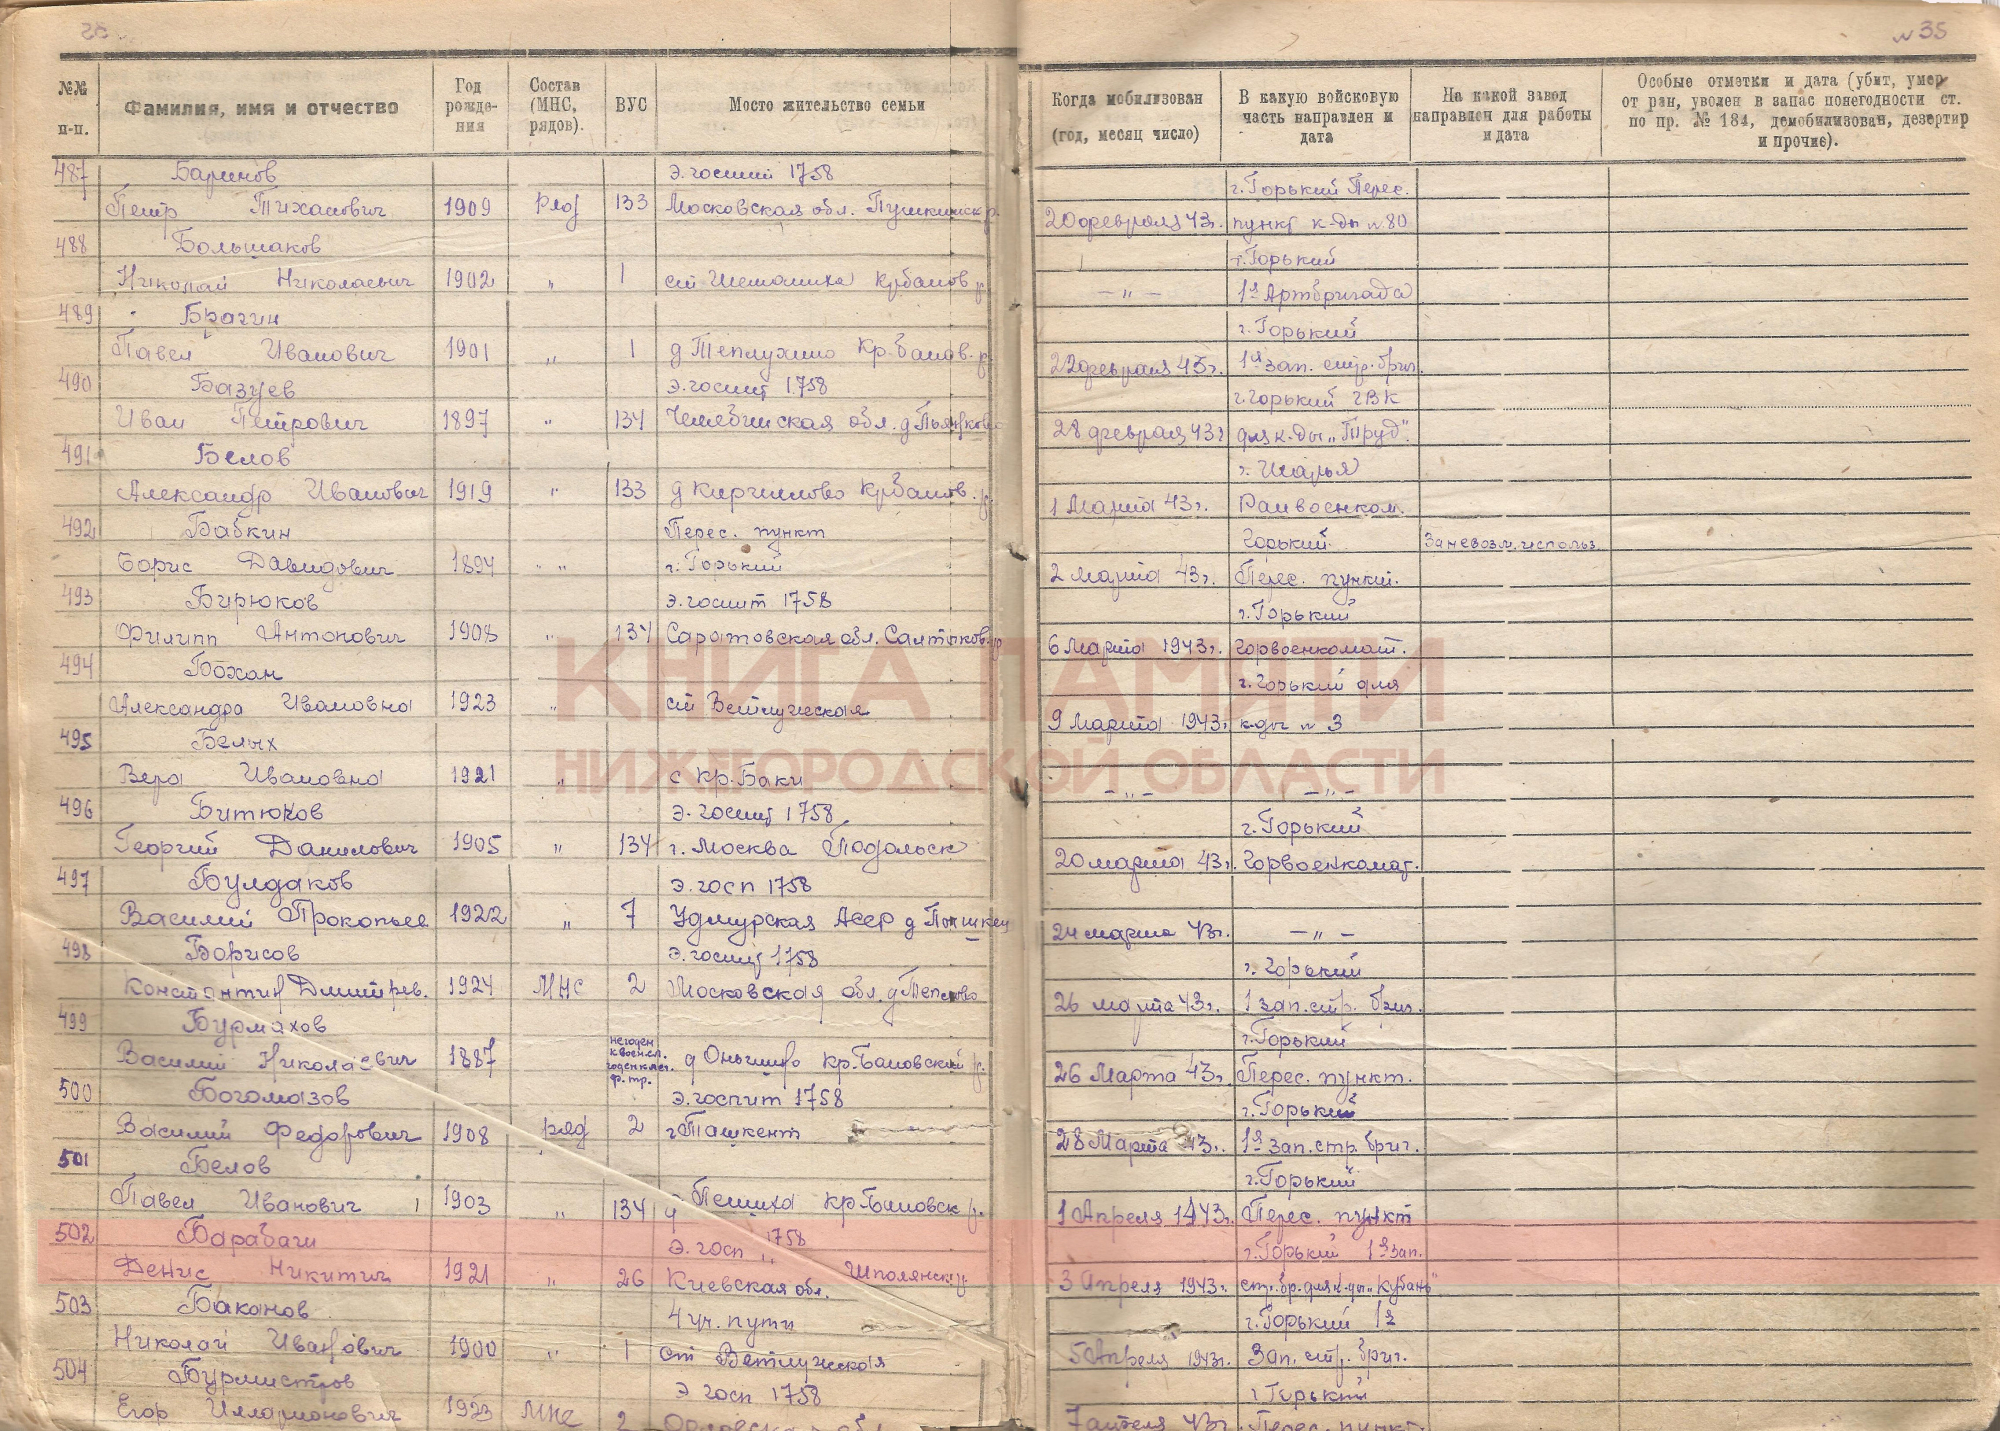 № 35
№№ п-п.
Фамилия, имя и отчество
Год рожде-ния
Состав (МНС, рядов).
ВУС
Мосто жительство семьи
Когда мобилизован (год, месяц число)
В какую войсковую часть направлен и дата
На какой завод направлен для работы и дата
Особые отметки и дата (убит, умер от ран, уволен в запас понегодности ст. по пр. № 184, демобилизован, дезертир и прочие).
487 Баринов э.госпит 1758
г. Горький Перес.
Петр Тиханович 1909 ряд 133 Московская обл. Пушкинск р.
20 февраля 43г. пункт к-ды №80
488 Большаков
г.Горький
Николай Николаевич 1902 " 1 ст Шеманиха Кр.баков р.
— " — 1я Артбригада
489 Брагин
г.Горький
Павел Иванович 1901 " 1 д Теплухино Кр.Баков. р.
22 февраля 43г. 1я зап. стр. бриг.
490 Базуев э.госпит 1758
г.Горький ГВК
Иван Петрович 1897 " 134 Челябинская обл. д
28 февраля 43г для к-ды „Труд".
491 Белов
г. Шарья
Александр Иванович 1919 " 133 д Кириллово Кр.Баков. р.
1 Марта 43г. Раивоенком.
492 Бабкин Перес. пункт
Горький. За невозм. использ.
Борис Давидович 1894 " " г. Горький
2 марта 43г. Перес. пункт.
493 Бирюков э.госпит 1758
г.Горький
Филипп Антонович 1908 " 134 Саратовская обл. Салтыков. р
6 Марта 1943г. Горвоенкомат.
494 Бохан
г.Горький для
Александра Ивановна 1923 " ст Ветлужская
9 Марта 1943г к-ды № 3
495 Белых
Вера Ивановна 1921 " с Кр.Баки
— " — — " —
496 Битюков э. госпит 1758
г.Горький
Георгий Данилович 1905 " 134 г. Москва Подольск
20 марта 43г. Горвоенкомат.
497 Булдаков э.госп 1758
Василий Прокопьев. 1922 " 7 Удмурская Асср д
24 марта 43г. — " —
498 Борисов э.госпит 1758
г. Горький
Константин Дмитрев. 1924 МНС 2 Московская обл. д
26 марта 43г. 1 зап.стр. бриг.
499 Бурмахов
г.Горький
Василий Николаевич 1887 негоден к воен.сл. годен к
ф.тр. д Кр.Баковский р.
26 Марта 43г. Перес. пункт.
500 Богомазов э.госпит 1758
г.Горький
Василий Федорович 1908 ряд 2 г Ташкент
28 Марта 43г. 1я зап.стр. бриг.
501 Белов
г.Горький
Павел Иванович 1903 " 134 Кр.Баковск р.
1 Апреля 1943г. Перес. пункт
502 Барабаш э.госп 1758
г.Горький 1я зап.
Денис Никитич 1921 " 26 Киевская обл. Шполянск р
3 Апреля 1943г. стр.бр.для к-ды „Кубань"
503 Баканов 4 уч. пути
г.Горький 1я
Николай Иванович 1900 " 1 ст Ветлужская
5 Апреля 1943г. Зап. стр. бриг.
504 Бурмистров э госп 1758
г Горький
Егор Илларионович 1923 МНС 2 Орловская обл
7 апреля 43г. Перес. пункт.
КНИГА ПАМЯТИ
НИЖЕГОРОДСКОЙ ОБЛАСТИ